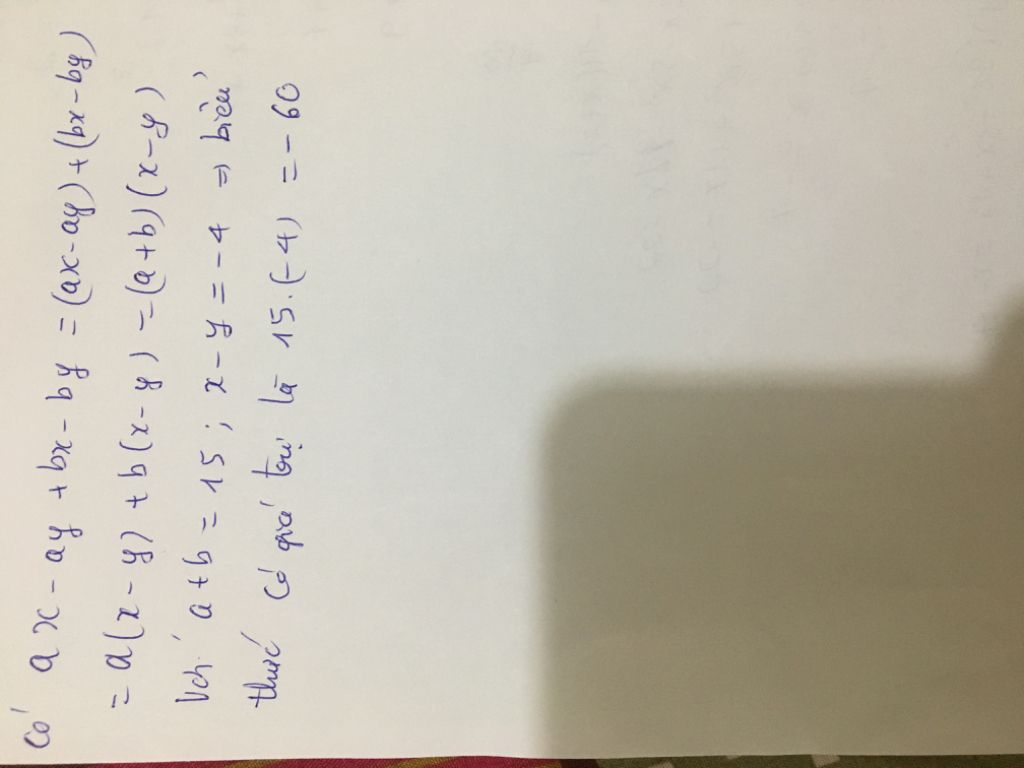 Có ax - ay + bx - by = (ax - ay) + (bx - by)
= a(x - y) + b(x - y) = (a + b)(x - y)
Với a + b = 15 ; x - y = - 4 => biểu
thức có giá trị là 15.(-4) = - 60